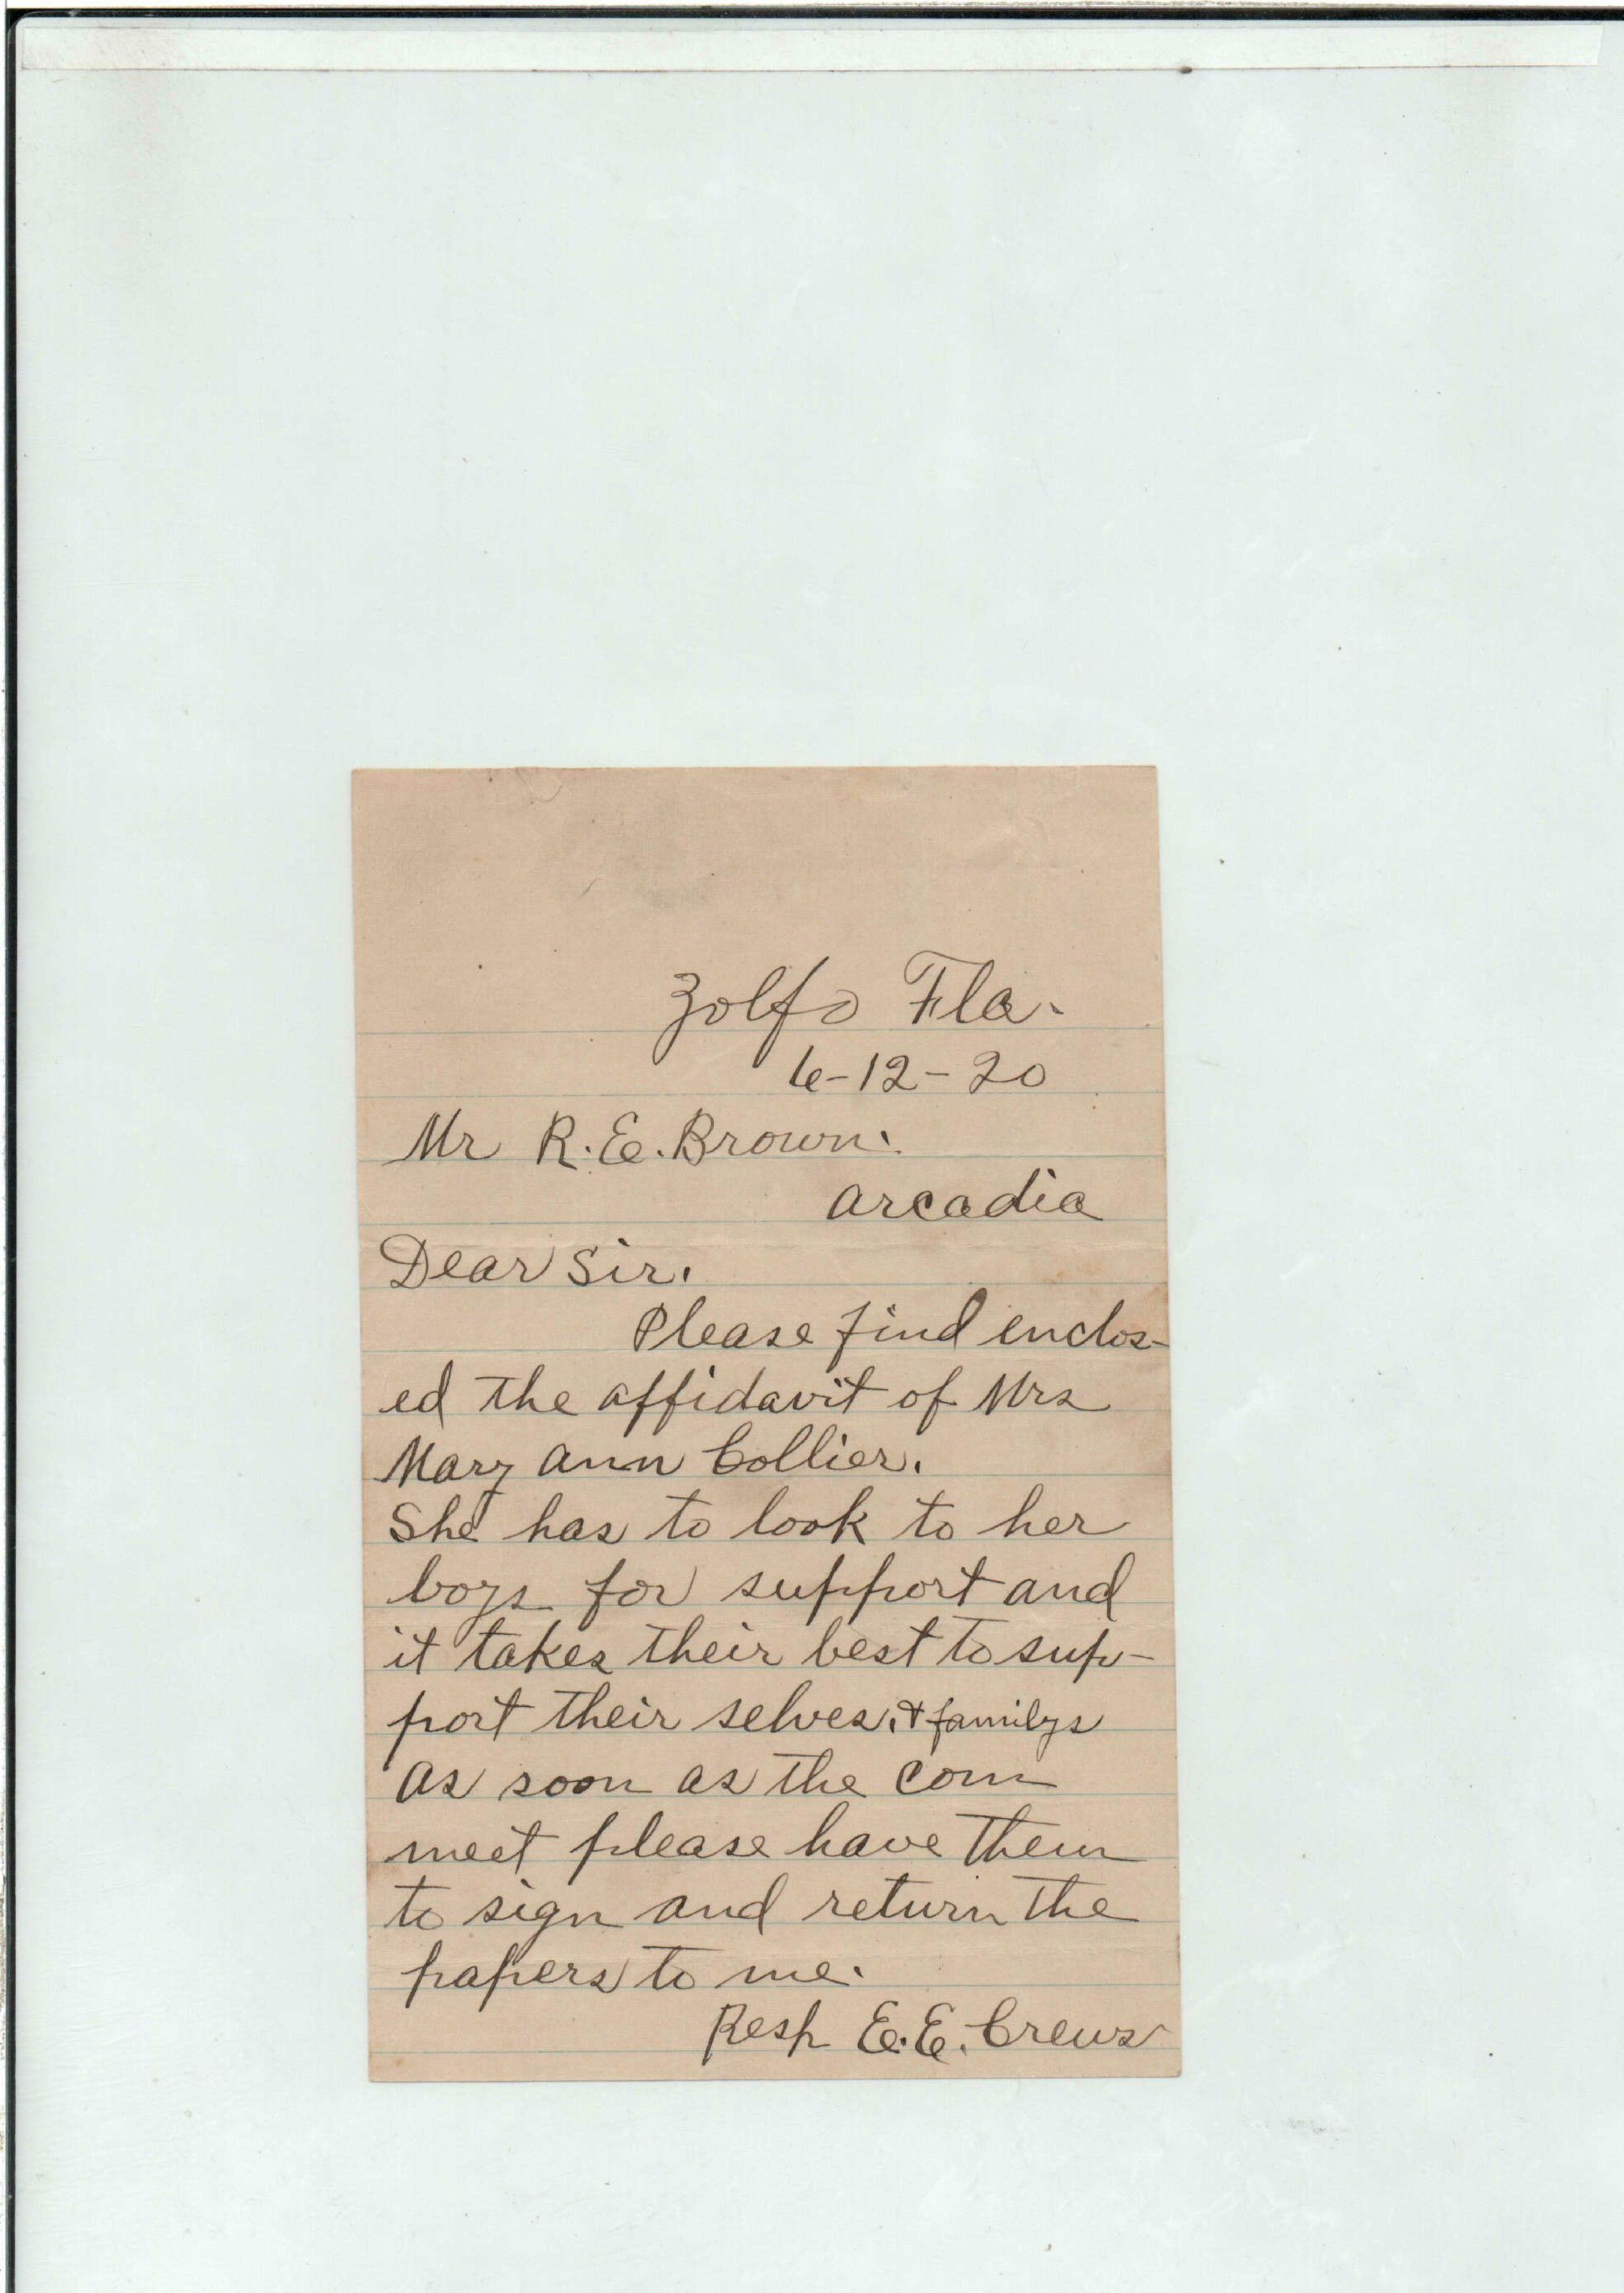 Zolfo Fla.
6-12-20
Mr R.E. Brown.
Arcadia
Dear Sir.
Please find enclos-
ed the affidavit of Mrs
Mary Ann Collier.
She has to look to her
boys for support and
it takes their best to sup-
port their selves, & familys
As soon as the com
meet please have them
to sign and return the
papers to me.
Resp E.E. Crews